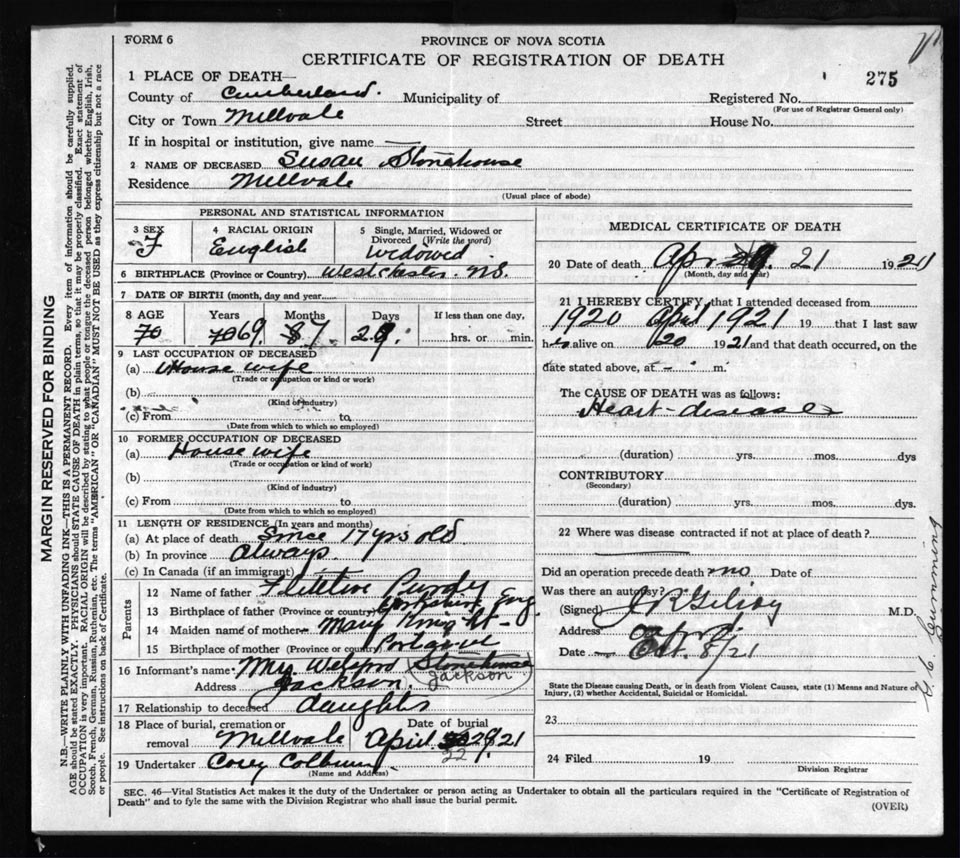 FORM 6
PROVINCE OF NOVA SCOTIA
CERTIFICATE OF REGISTRATION OF DEATH
275
1 PLACE OF DEATH—
County of Cumberland. Municipality of Registered No.
(For use of Registrar General only)
City or Town Millvale Street House No.
If in hospital or institution, give name
2 NAME OF DECEASED Susan Stonehouse
Residence Millvale
(Usual place of abode)
PERSONAL AND STATISTICAL INFORMATION
3 SEX F
4 RACIAL ORIGIN English
5 Single, Married, Widowed or Divorced (Write the word) widowed
6 BIRTHPLACE (Province or Country) Westchester N.S.
7 DATE OF BIRTH (month, day and year)
8 AGE Years Months Days If less than one day,
70 70 69 8 7 29 hrs. or min.
9 LAST OCCUPATION OF DECEASED
(a) House wife
(Trade or occupation or kind or work)
(b)
(Kind of industry)
(c) From to
(Date from which to which so employed)
10 FORMER OCCUPATION OF DECEASED
(a) House wife
(Trade or occupation or kind of work)
(b)
(Kind of industry)
(c) From to
(Date from which to which so employed)
11 LENGTH OF RESIDENCE (In years and months)
(a) At place of death since 17 yrs old
(b) In province always
(c) In Canada (if an immigrant)
Parents
12 Name of father Purdy
13 Birthplace of father (Province or country) Yorkshire Eng
14 Maiden name of mother Mary Knight
15 Birthplace of mother (Province or country)
16 Informant's name Mrs. Welsford Stonehouse
Jackson
Address Jackson
17 Relationship to deceased daughter
18 Place of burial, cremation or removal Millvale
Date of burial April 22 21
19 Undertaker Corey
(Name and Address)
MEDICAL CERTIFICATE OF DEATH
20 Date of death Apr 21 1921
(Month, day and year)
21 I HEREBY CERTIFY, that I attended deceased from
1920 April 1921 19 that I last saw
her alive on 20 1921 and that death occurred, on the
date stated above, at m.
The CAUSE OF DEATH was as follows:
Heart-disease
(duration) yrs. mos. dys
CONTRIBUTORY
(Secondary)
(duration) yrs. mos. dys.
22 Where was disease contracted if not at place of death?
Did an operation precede death no Date of
Was there an autopsy?
(Signed) M.D.
Address
Date Oct. 8/21
State the Disease causing Death, or in death from Violent Causes, state (1) Means and Nature of Injury, (2) whether Accidental, Suicidal or Homicidal.
23
24 Filed 19
Division Registrar
SEC. 46—Vital Statistics Act makes it the duty of the Undertaker or person acting as Undertaker to obtain all the particulars required in the "Certificate of Registration of
Death" and to fyle the same with the Division Registrar who shall issue the burial permit.
(OVER)
MARGIN RESERVED FOR BINDING
N.B.—WRITE PLAINLY WITH UNFADING INK—THIS IS A PERMANENT RECORD. Every item of information should be carefully supplied.
AGE should be stated EXACTLY. PHYSICIANS should STATE CAUSE OF DEATH in plain terms, so that it may be properly classified. Exact statement of
OCCUPATION is very important. RACIAL ORIGIN will be described by stating to what people or tongue the deceased person belonged whether English, Irish,
Scotch, French, German, Russian, Ruthenian, etc. The terms "AMERICAN" OR "CANADIAN" MUST NOT BE USED as they express citizenship but not a race
or people. See instructions on back of Certificate.